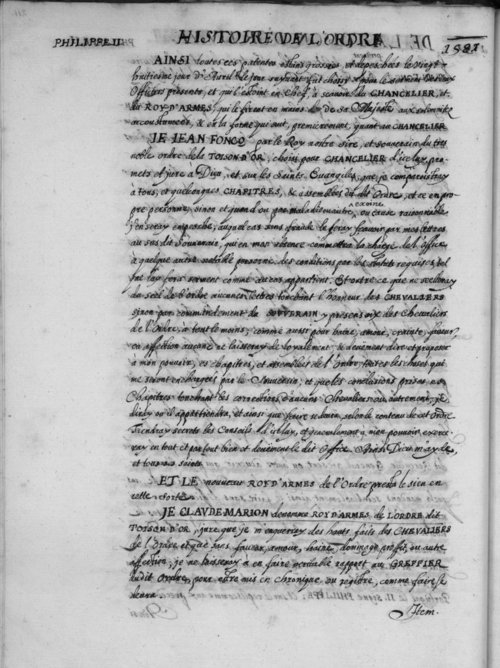 PHILIPPE II
HISTOIRE DE L'ORDRE
1581
AINSI toutes ces patentes et depeschées le vingt
huitiesme jour d'Avril le jour suyvant fut choisy pour le serment
Officiers presents, et qu'estoient en Chef, a scavoir du CHANCELIER, et
du ROY D'ARMES, qui le firent en mains de sa Majesté aux solemnitez
accoustumées, & en la forme qui suit, premierement, quant au CHANCELIER
JE JEAN FONCQ par le Roy nostre sire, et souverain du tres
noble ordre de la TOISON D'OR, choisy pour CHANCELIER d'icelluy, pro-
mets et jure a Dieu, et sur les Saints Evangiles, que je compareistray
a tous, et quelconques CHAPITRES, & assemblees du dit Ordre, et ce en pro-
pre personne, sinon et quand ou par maladie ou autre essonne, ou cause raisonnable
j'en seray empesché, auquel cas sans fraude le feray scavoir par mes lettres
au susdit Souverain, qui en mon absence commettra la charge du dit office
a quelque autre notable personne des conditions par les statuts requises, tel
fait luy fera serment comme au cas appartient. Et oultre ce que ne seelleray
du seel de l'ordre aucunes lettres touchant l'honneur des CHEVALIERS
sinon par commandement du SOUVERAIN y presens six des Chevaliers
de l'Ordre, a tout le moins, comme aussi pour haine, amour, crainte, faveur,
ou affection aucune ne laisseray de loyalement, & deuëment dire et proposer
a mon pouvoir, es chapitres, et assemblees de l'Ordre, toutes les choses qui
me seront enchargees par le Souverain, et que les conclusions prises es
Chapitres touchant les corrections d'aucuns Chevaliers ou autrement, je
diray ou il appartiendra, et ainsi que faire se devra, selon le contenu de cet Ordre.
Tiendray secrets les Conseils d'icelluy, et generalement a mon pouvoir exerce-
ray en tout et par tout bien et deuëment le dit Office. Ainsi Dieu m'ayde
et tous ses saints.
ET LE nouveau ROY D'ARMES de l'Ordre presta le sien en
cette sorte.
JE CLAUDE MARION denommé ROY D'ARMES de L'ORDRE dit
TOISON D'OR, jure que je m'enquerray des hauts faits des CHEVALIERS
de l'Ordre et que sans faveur, amour, haine, dommage, proffit, ou autre
affection, je ne laisseray a en faire veritable rapport au GREFFIER
dudit Ordre, pour estre mis en chronique, ou registre, comme faire se
devra.
Item.